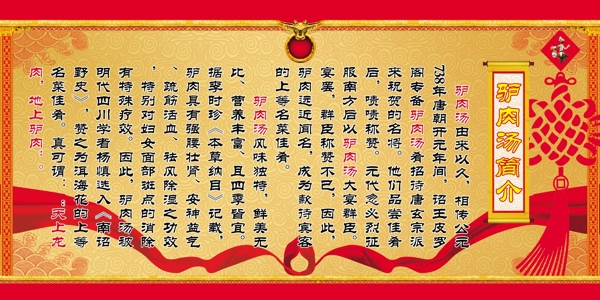 驴肉汤简介
驴肉汤由来以久,相传公元
738年唐朝开元年间,诏王皮罗
阁专备驴肉汤肴招待唐玄宗派
来祝贺的名将。他们品尝佳肴
后,啧啧称赞。元代忽必烈征
服南方后以驴肉汤大宴群臣。
宴罢,群臣称赞不已,因此,
驴肉远近闻名,成为款待宾客
的上等名菜佳肴。
驴肉汤风味独特,鲜美无
比、营养丰富、且四季皆宜。
据李时珍《本草纲目》记载,
驴肉具有强腰壮肾、安神益气
、疏筋活血、祛风除湿之功效
,特别对妇女面部斑点的消除
有特殊疗效。因此,驴肉汤被
明代四川学者杨慎选入《南诏
野史》,赞之为洱海花的上等
名菜佳肴。真可谓::天上龙
肉,地上驴肉:。